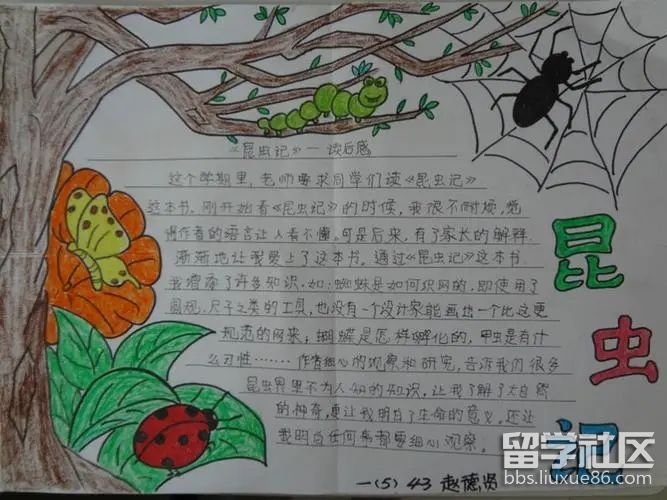 《昆虫记》一读后感
这个学期里，老师要求同学们读《昆虫记》
这本书。刚开始看《昆虫记》的时候，我很不耐烦，觉
得作者的语言让人看不懂。可是后来，有了家长的解释，
渐渐地让我爱上了这本书。通过《昆虫记》这本书，
我增添了许多知识，如：蜘蛛是如何织网的，即使用了
圆规、尺子之类的工具，也没有一个设计家能画出一个比这更
规范的网来；蝴蝶是怎样孵化的，甲虫是有什
么习性………作者细心的观察和研究，告诉我们很多
昆虫界里不为人知的知识，让我了解了大自然
的神奇，更让我明白了生命的意义，还让
我明白任何事都要细心观察。
一(5) 43 赵德贤
昆
虫
记
留学社区
bbs.liuxue86.com